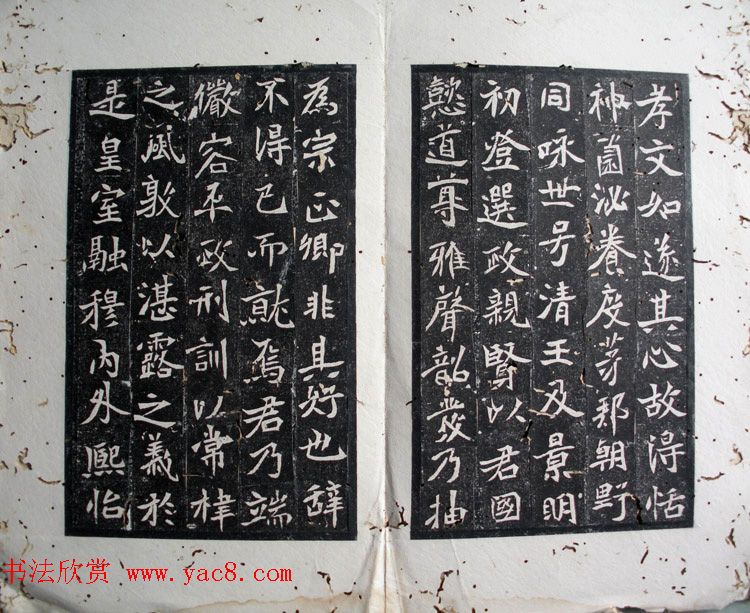 孝文如遂其心故得恬
神薗泌養度茅邦朝野
同咏世号清王及景明
初登選政親賢以君國
懿道尊雅聲韶發乃抽
為宗正卿非其好也辭
不得已而就焉君乃端
徽容平政刑訓以常棣
之風敦以湛露之義於
是皇室融穆内外熙怡
书法欣赏 www.yac8.com